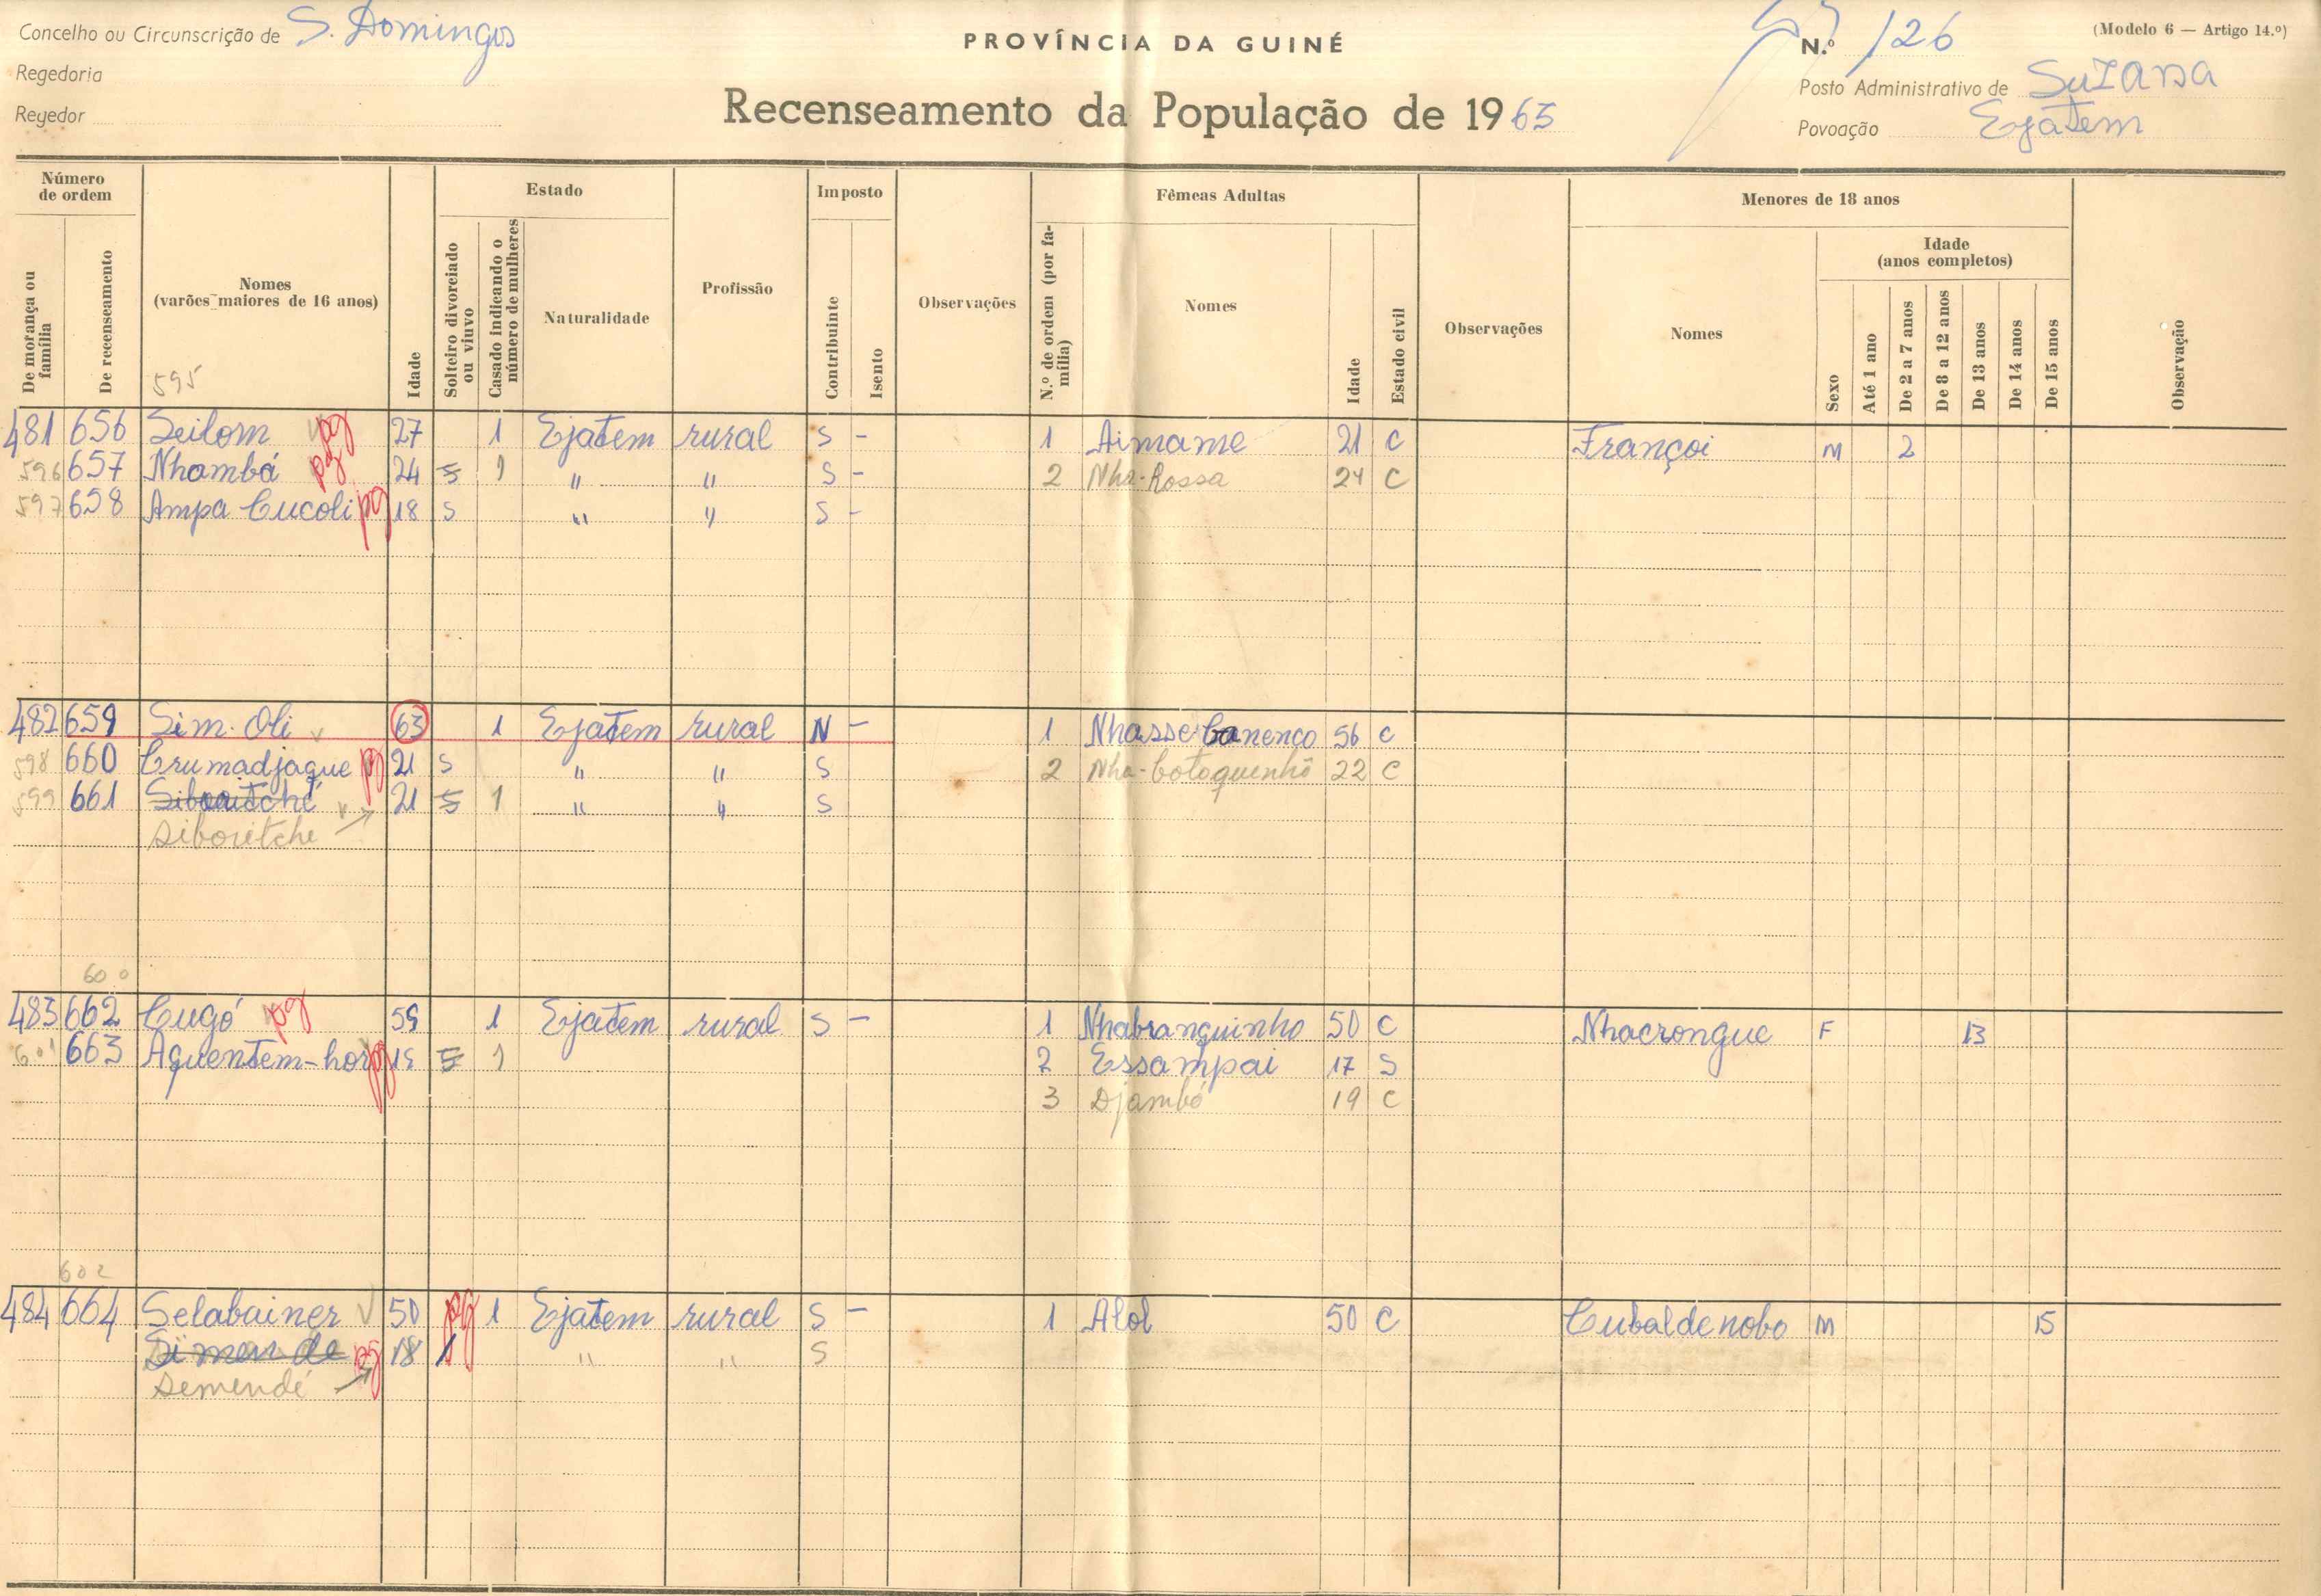 Concelho ou Circunscrição de S. Domingos
PROVÍNCIA DA GUINÉ
N.º 126
(Modelo 6 — Artigo 14.º)
Regedoria
Posto Administrativo de Suzana
Regedor
Recenseamento da População de 1965
Povoação Ejatem
Número de ordem
Estado
Imposto
Fêmeas Adultas
Menores de 18 anos
De morança ou família
De recenseamento
Nomes (varões maiores de 16 anos)
Idade
Solteiro divorciado ou viuvo
Casado indicando o número de mulheres
Naturalidade
Profissão
Contribuinte
Isento
Observações
N.º de ordem (por família)
Nomes
Idade
Estado civil
Observações
Nomes
Sexo
Idade (anos completos)
Até 1 ano
De 2 a 7 anos
De 8 a 12 anos
De 13 anos
De 14 anos
De 15 anos
Observação
595
481 656 Seilom pg 27 1 Ejatem rural S - 1 Aimame 21 C Françoi M 2
596 657 Nhambá pg 24 S 1 " " S - 2 Nha-Rossa 24 C
597 658 Ampa Cucoli pg 18 S " " S -
482 659 Sim-Oli 63 1 Ejatem rural N - 1 Nhasse Canenco 56 C
598 660 Crumadjaque pg 21 S " " S 2 Nha-Cotoquenhô 22 C
599 661 21 S 1 " " S
Siboritche
600
483 662 Cugó pg 59 1 Ejatem rural S - 1 Nhabranquinho 50 C Nhacrongue F 13
601 663 Aquentem-hor pg S 1 2 Essampai 17 S
3 Djambó 19 C
602
484 664 Selabainer 50 pg 1 Ejatem rural S - 1 Alol 50 C Cubaldenobo M 15
Simende pg 18 1 " " S
Semendé